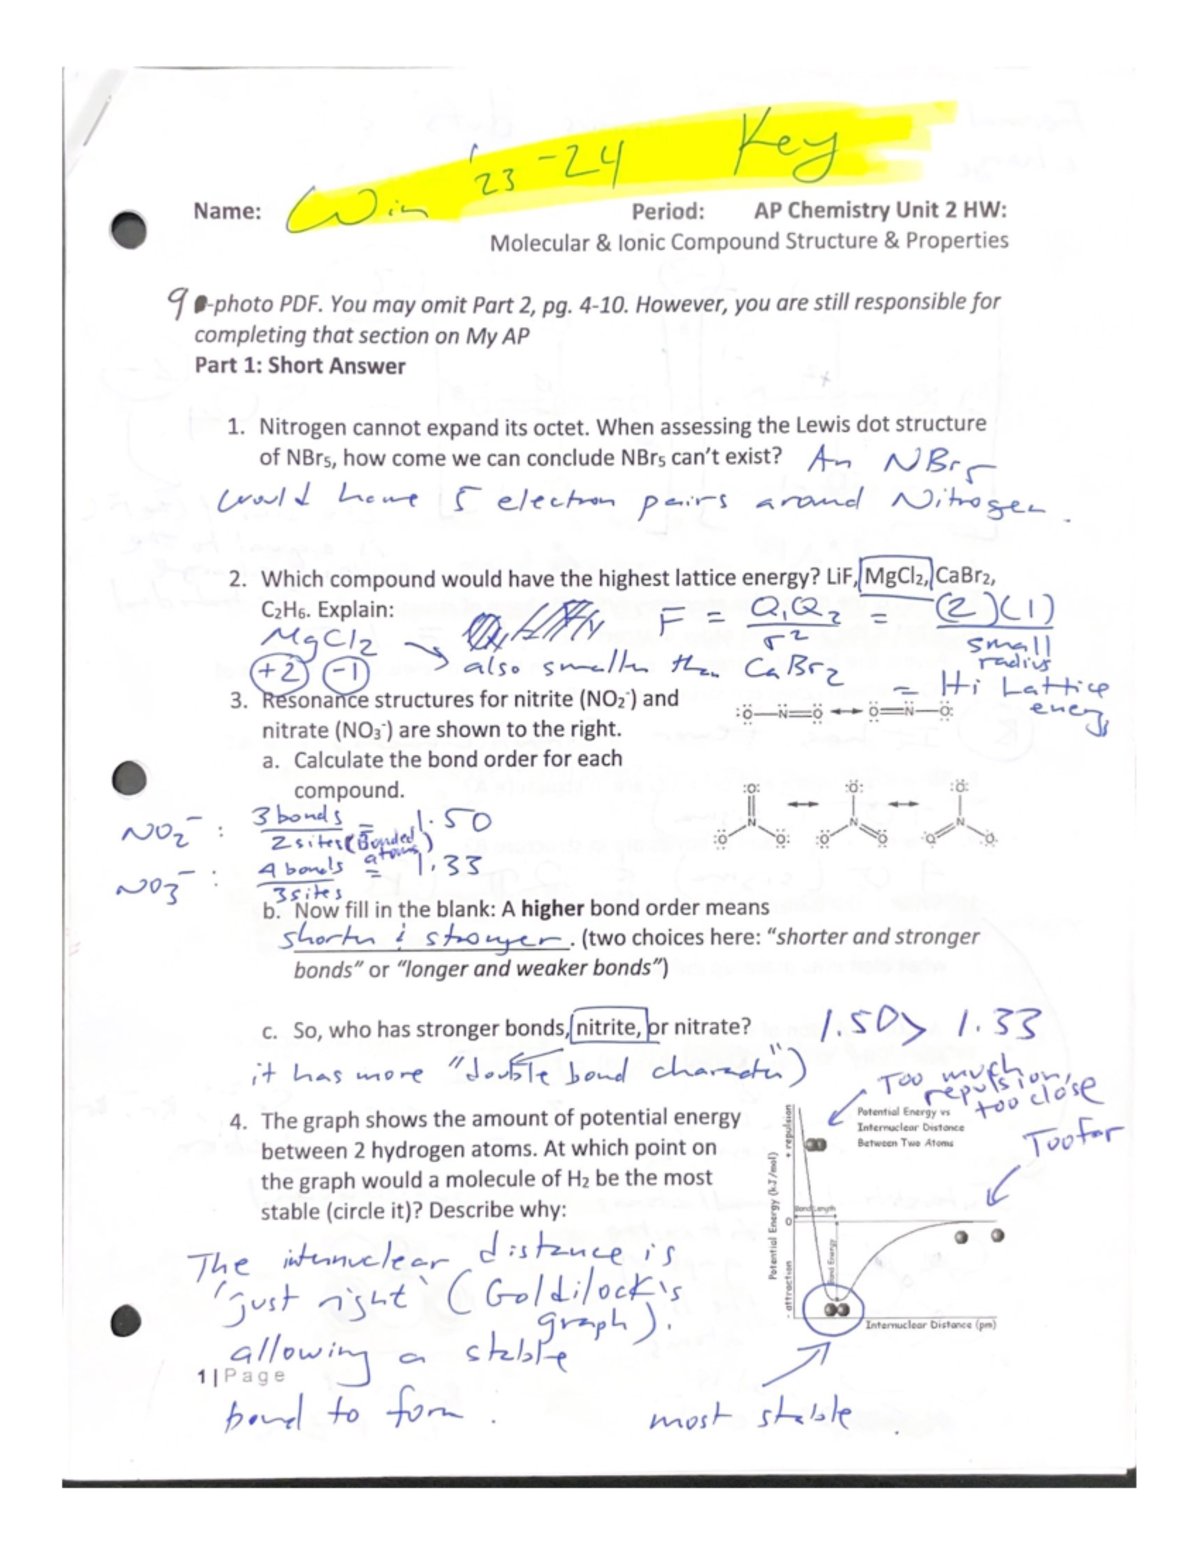 Win '23-24 Key
Name: Period: AP Chemistry Unit 2 HW:
Molecular & Ionic Compound Structure & Properties
9 -photo PDF. You may omit Part 2, pg. 4-10. However, you are still responsible for
completing that section on My AP
Part 1: Short Answer
1. Nitrogen cannot expand its octet. When assessing the Lewis dot structure
of NBr₅, how come we can conclude NBr₅ can't exist? An NBr₅
would have 5 electron pairs around Nitrogen.
2. Which compound would have the highest lattice energy? LiF, MgCl₂, CaBr₂,
C₂H₆. Explain:
MgCl₂
+2 -1
also smaller than CaBr₂
F = Q₁Q₂ / r² = (2)(1) / small radius
= Hi Lattice energy
3. Resonance structures for nitrite (NO₂⁻) and
nitrate (NO₃⁻) are shown to the right.
:Ö—N̈=Ö ↔ Ö=N̈—Ö:
a. Calculate the bond order for each
compound.
NO₂⁻: 3 bonds / 2 sites (Bonded atoms) = 1.50
NO₃⁻: 4 bonds / 3 sites = 1.33
b. Now fill in the blank: A higher bond order means
shorter & stronger. (two choices here: "shorter and stronger
bonds" or "longer and weaker bonds")
c. So, who has stronger bonds, nitrite, or nitrate? 1.50 > 1.33
it has more "double bond character")
4. The graph shows the amount of potential energy
between 2 hydrogen atoms. At which point on
the graph would a molecule of H₂ be the most
stable (circle it)? Describe why:
The internuclear distance is
'just right' (Goldilock's
graph).
allowing a stable
bond to form.
Too much
repulsion,
too close
Too far
Potential Energy vs
Internuclear Distance
Between Two Atoms
Potential Energy (kJ/mol)
+ repulsion
0
- attraction
Bond Length
Bond Energy
Internuclear Distance (pm)
most stable.
1 | Page